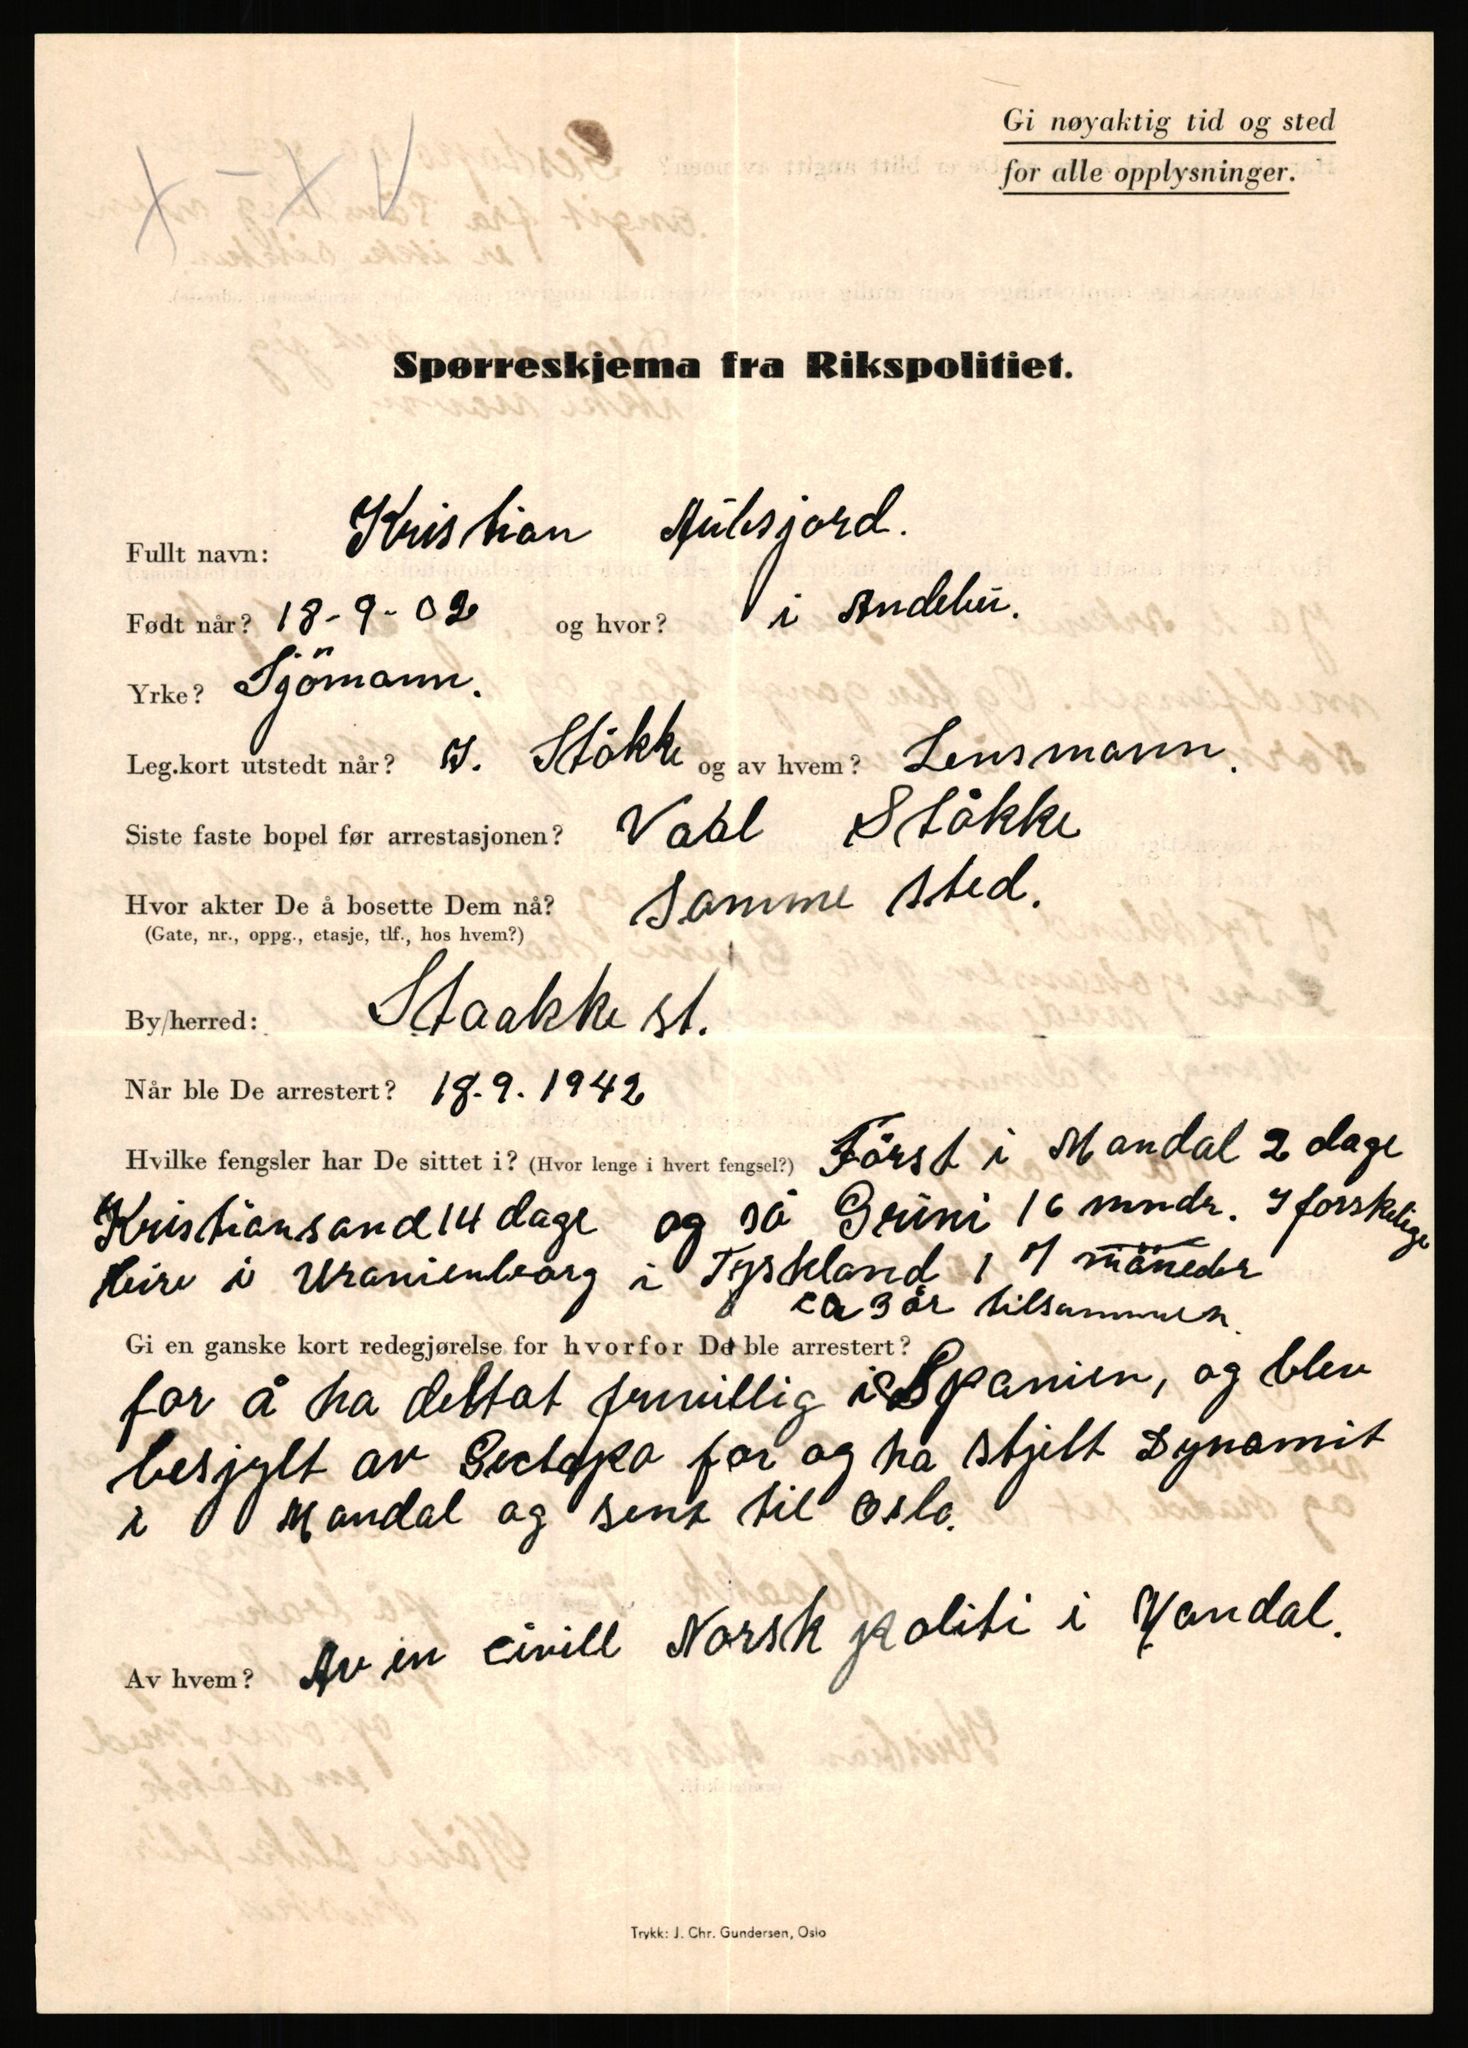 Gi nøyaktig tid og sted
for alle opplysninger.
Spørreskjema fra Rikspolitiet.
Fullt navn: Kristian Aulesjord.
Født når? 18-9-02 og hvor? i Andebu.
Yrke? Sjömann.
Leg.kort utstedt når? Stökke og av hvem? Lensmann.
Siste faste bopel før arrestasjonen? Vaal Stökke
Hvor akter De å bosette Dem nå? Samme sted.
(Gate, nr., oppg., etasje, tlf., hos hvem?)
By/herred: Staakke st.
Når ble De arrestert? 18.9.1942
Hvilke fengsler har De sittet i? (Hvor lenge i hvert fengsel?) Först i Mandal 2 dage
Kristiansand 14 dage og så Grini 16 mndr. I forskelige
leire i Uranienborg i Tyskland 17 måneder
ca 3 år tilsammen.
Gi en ganske kort redegjørelse for hvorfor De ble arrestert?
for å ha deltat frivillig i Spanien, og blev
besjylt av Gestapo for og ha stjelt Dynamit
i Mandal og sent til Oslo.
Av hvem? Av en civill Norsk politi i Mandal.
Trykk: J. Chr. Gundersen, Oslo